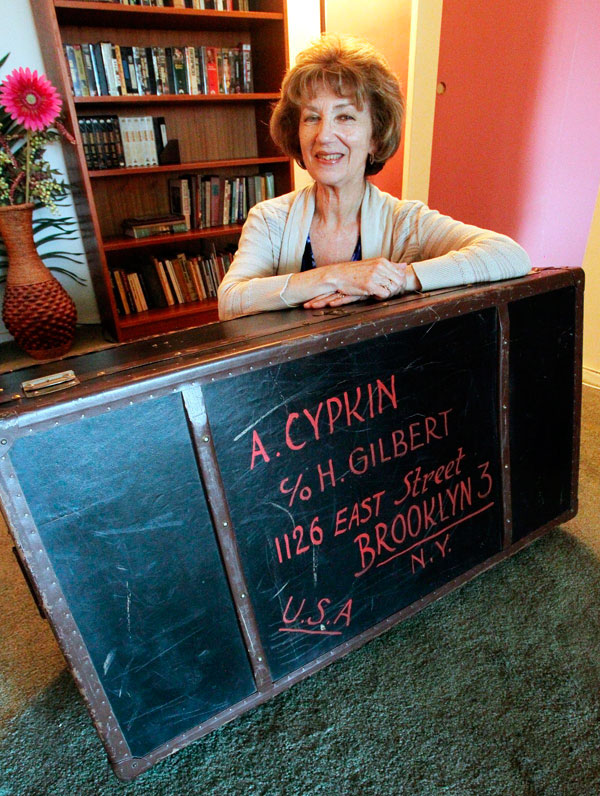 A. CYPKIN
c/o H. GILBERT
1126 EAST Street
BROOKLYN 3
N.Y.
U.S.A